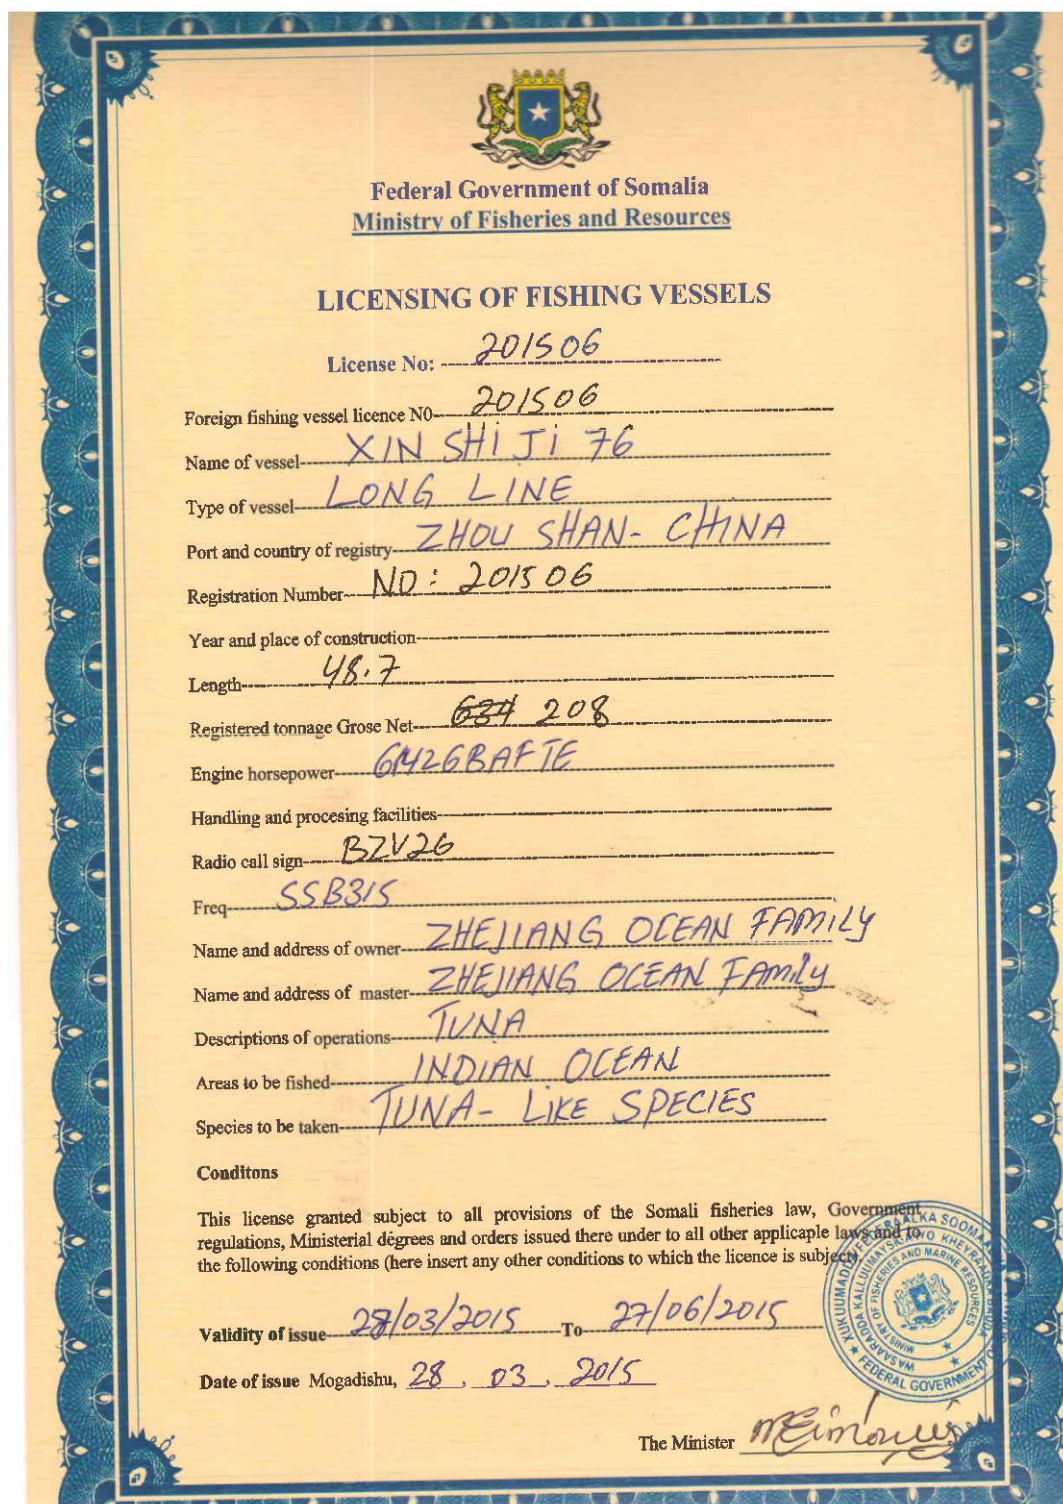 Federal Government of Somalia
Ministry of Fisheries and Resources
LICENSING OF FISHING VESSELS
License No: 201506
Foreign fishing vessel licence N0 201506
Name of vessel XIN SHI JI 76
Type of vessel LONG LINE
Port and country of registry ZHOU SHAN- CHINA
Registration Number NO: 201506
Year and place of construction
Length 48.7
Registered tonnage Grose Net 634 208
Engine horsepower 6M26BAFTE
Handling and procesing facilities
Radio call sign BZV26
Freq SSB315
Name and address of owner ZHEJIANG OCEAN FAMILY
Name and address of master ZHEJIANG OCEAN FAMILY
Descriptions of operations TUNA
Areas to be fished INDIAN OCEAN
Species to be taken TUNA- LIKE SPECIES
Conditons
This license granted subject to all provisions of the Somali fisheries law, Government
regulations, Ministerial degrees and orders issued there under to all other applicaple laws and to
the following conditions (here insert any other conditions to which the licence is subject).
MINISTRY OF FISHERIES AND MARINE RESOURCES
FEDERAL GOVERNMENT
Validity of issue 28/03/2015 To 27/06/2015
Date of issue Mogadishu, 28 . 03 . 2015
The Minister